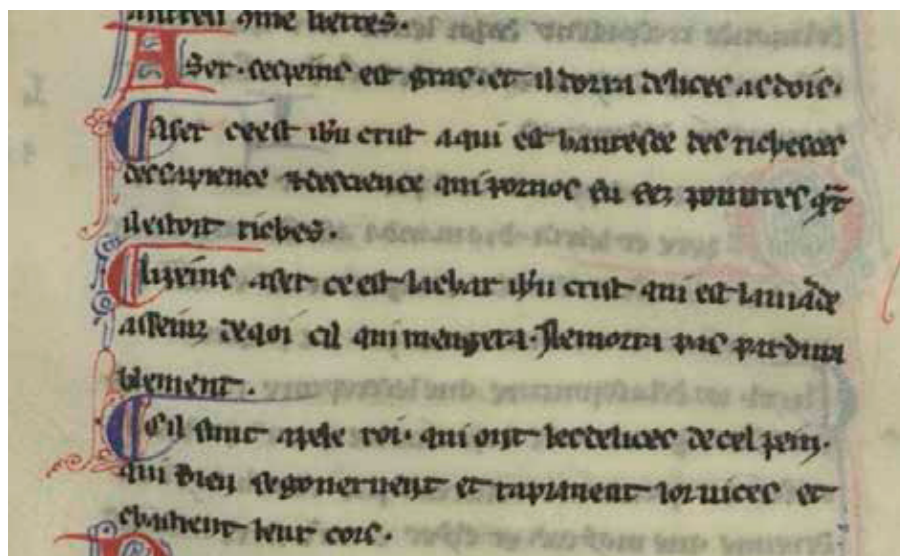 Aser. ses peins est gras. et il dorra delices as rois.
Caser ce est ihu crist a qui est hautesde des richesces
de sapience & de science qui por nos fu fez pouures qr
il estoit riches.
Li peins aser ce est la char ihu crist qui est la uiāde
as seinz de qoi cil qui mengera. Ne morra pas pardura
blement.
Ccil sunt apele roi. qui ont les delices de cel pein.
qui bien se gouernent et raprient lor uices et
chastient leur cors.